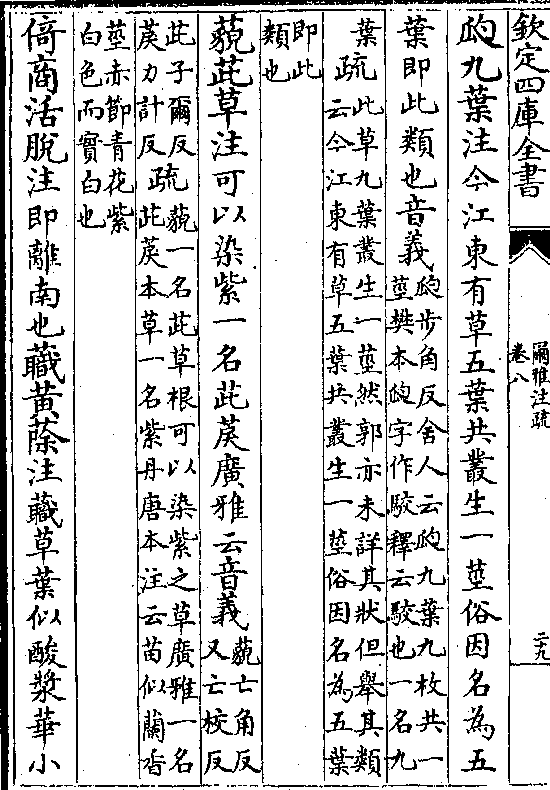 欽定四庫全書
爾雅注疏
卷八
二九
瓝九葉注今江東有草五葉共叢生一莖俗因名為五
葉即此類也音義
瓝步角反舍人云瓝九葉九枚共一
莖樊本瓝字作駮釋云駮也一名九
葉
疏
此草九葉叢生一莖然郭亦未詳其狀但舉其類
云今江東有草五葉共叢生一莖俗因名為五葉
即此
類也
藐茈草注可以染紫一名茈䓞廣雅云音義
藐亡角反
又亡校反
茈子爾反
䓞力計反
疏
藐一名茈草根可以染紫之草廣雅一名
茈䓞本草一名紫丹唐本注云苗似蘭香
莖赤節青花紫
白色而實白也
倚商活脫注即離南也蘵黄蒢注蘵草葉似酸漿華小